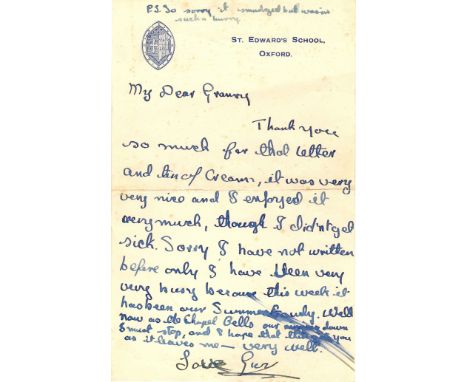 P.S. So sorry it smudged but was in
such a hurry
ST. EDWARD'S SCHOOL,
OXFORD.
My Dear Granny
Thank you
so much for that letter
and tin of Cream, it was very
very nice and I enjoyed it
very much, though I didn't get
sick. Sorry I have not written
before only I have been very
very busy because this week it
has been our Summer Gaudy. Well
now as the Chapel Bells our down
I must stop, and I hope that this you
as it leaves me — very well.
Love Guz